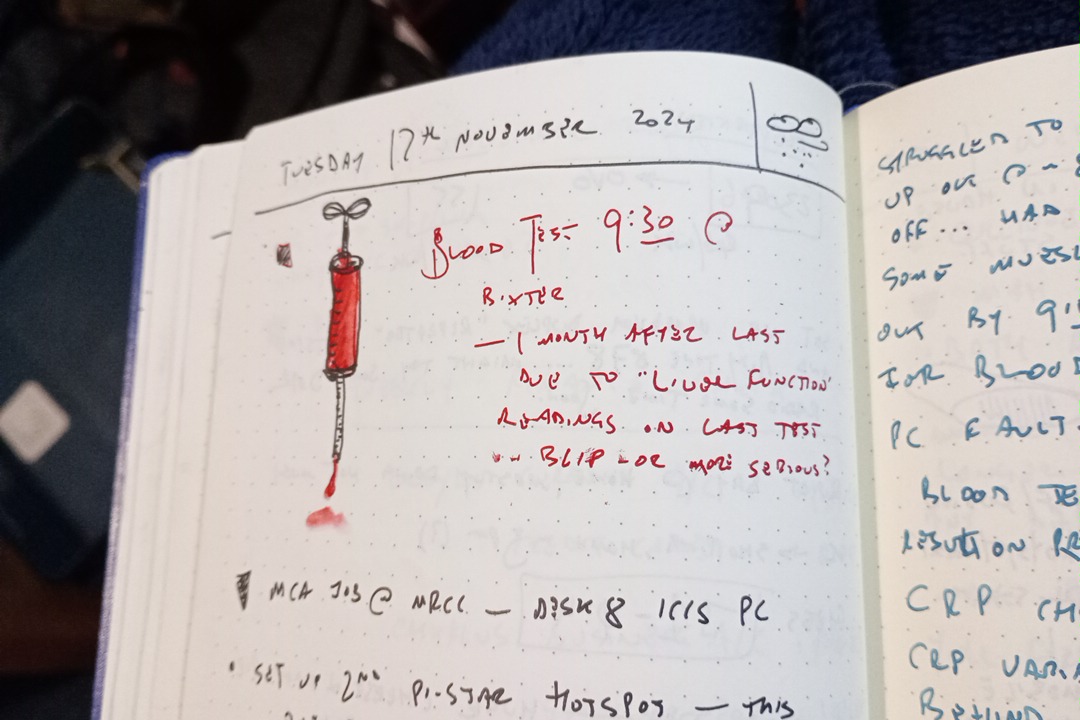 TUESDAY 17TH NOVEMBER 2024
BLOOD TEST 9:30 @
BIXTER
— 1 MONTH AFTER LAST
DUE TO "LIVER FUNCTION"
READINGS ON LAST TEST
·· BLIP - OR MORE SERIOUS?
MCA JOB @ MRCC — DISK 8 ICCS PC
· SET UP 2ND PI-STAR HOTSPOT — THIS
STRUGGLED TO
UP
OFF... HAD
SOME MUESL
OUT BY 9:
FOR BLOOD
PC FAULT
BLOOD TE
CRP CH
CRP VARIA
BEHIND